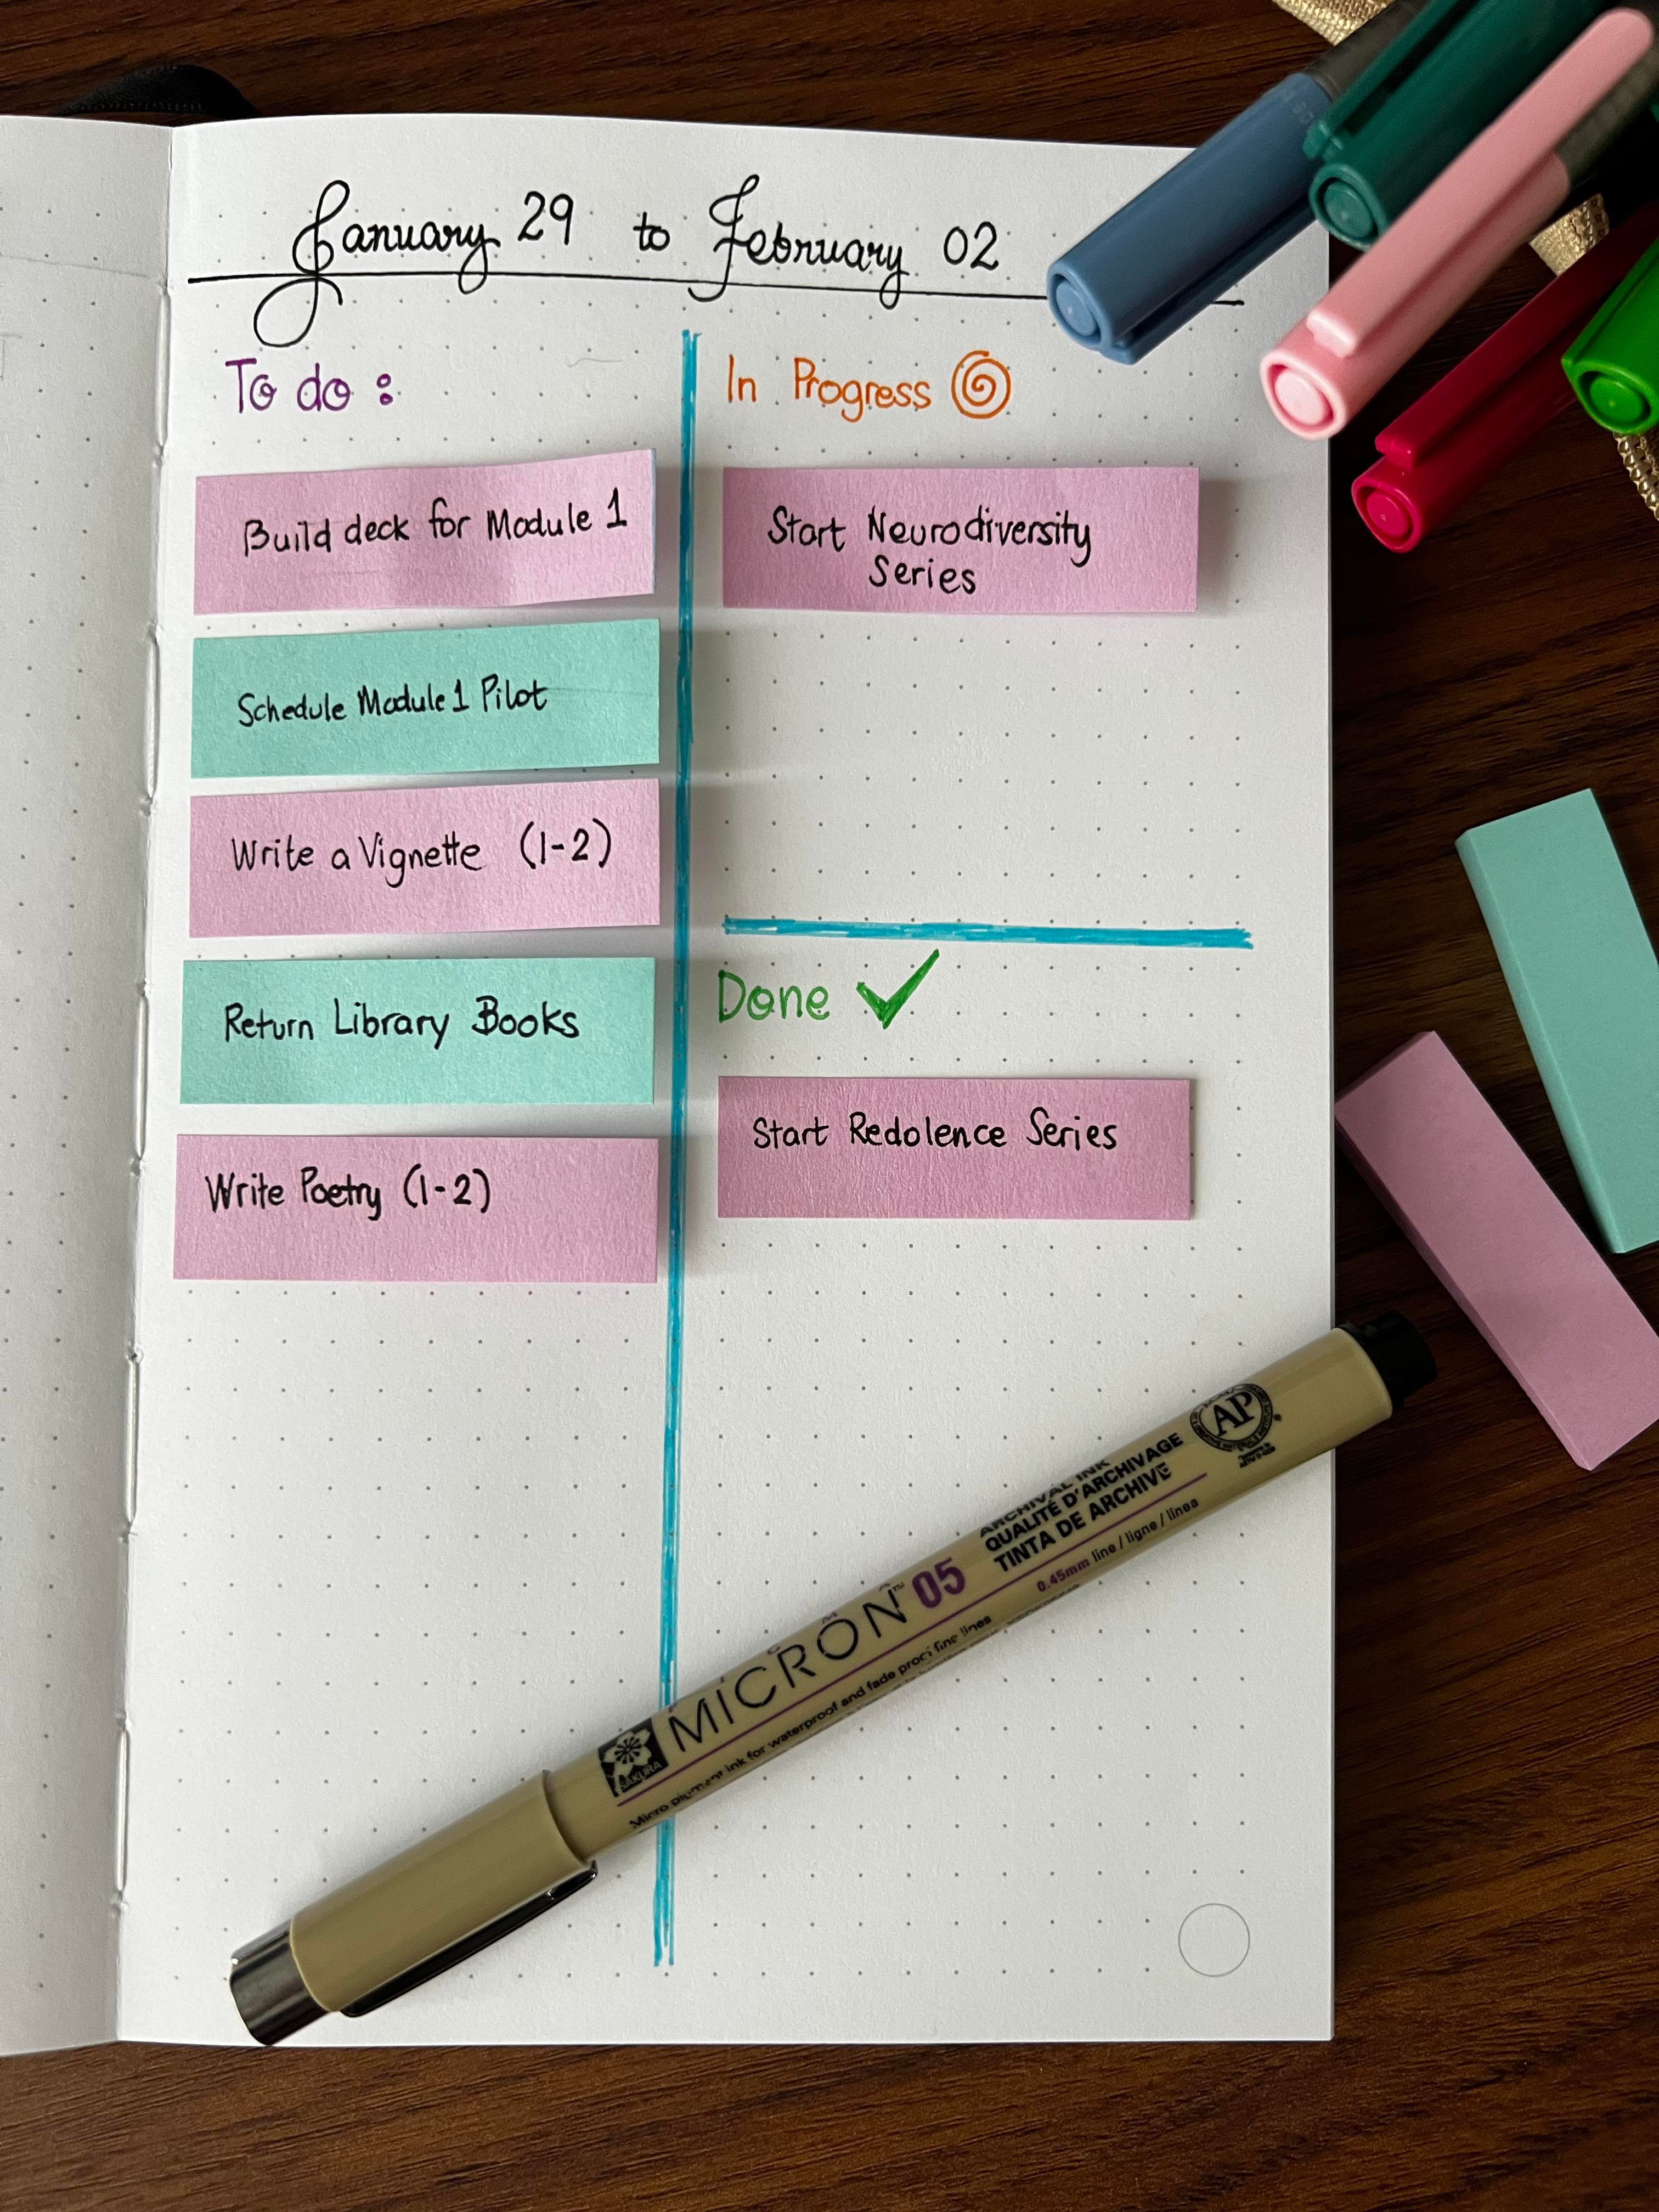 January 29 to February 02
To do :
Build deck for Module 1
Schedule Module 1 Pilot
Write a Vignette (1-2)
Return Library Books
Write Poetry (1-2)
In Progress
Start Neurodiversity
Series
Done ✓
Start Redolence Series
SAKURA
MICRON™ 05
ARCHIVAL INK
QUALITÉ D'ARCHIVAGE
TINTA DE ARCHIVE
AP
0.45mm line / ligne / línea
Micro pigment ink for waterproof and fade proof fine lines